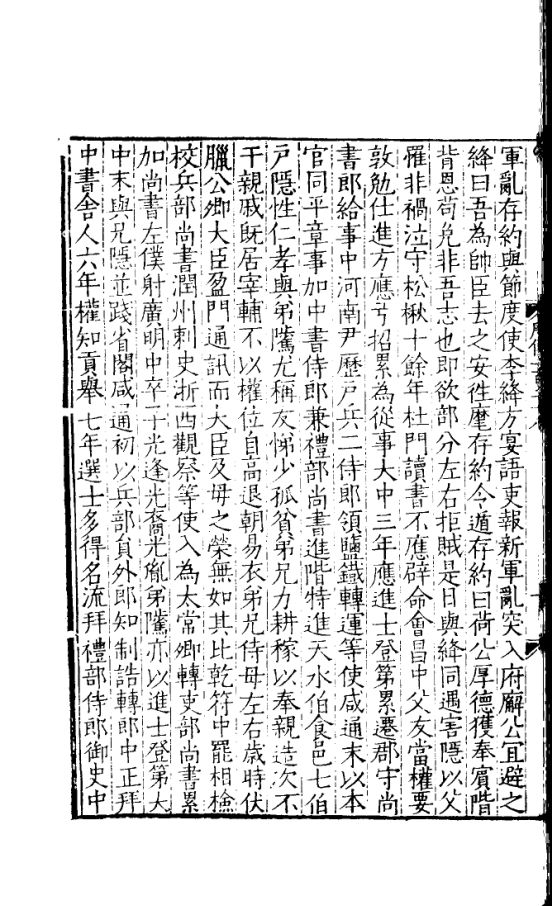 軍亂存約與節度使李絳方宴語吏報新軍亂突入府廨公宜避之
絳曰吾為帥臣去之安徃麾存約令遁存約曰荷公厚德獲奉賓階
背恩苟免非吾志也即欲部分左右拒賊是日與絳同遇害隱以父
罹非禍泣守松楸十餘年杜門讀書不應辟命會昌中父友當權要
敦勉仕進方應弓招累為從事大中三年應進士登第累遷郡守尚
書郎給事中河南尹歷戸兵二侍郎領鹽鐵轉運等使咸通末以本
官同平章事加中書侍郎兼禮部尚書進階特進天水伯食邑七伯
戸隱性仁孝與弟騭尤稱友悌少孤貧弟兄力耕稼以奉親造次不
干親戚旣居宰輔不以權位自高退朝易衣弟兄侍母左右歲時伏
臘公卿大臣盈門通訊而大臣及母之榮無如其比乾符中罷相檢
校兵部尚書潤州刺史浙西觀察等使入為太常卿轉吏部尚書累
加尚書左僕射廣明中卒子光逢光裔光胤弟騭亦以進士登第大
中末與兄隱並踐省閣咸通初以兵部員外郎知制誥轉郎中正拜
中書舍人六年權知貢舉七年選士多得名流拜禮部侍郎御史中